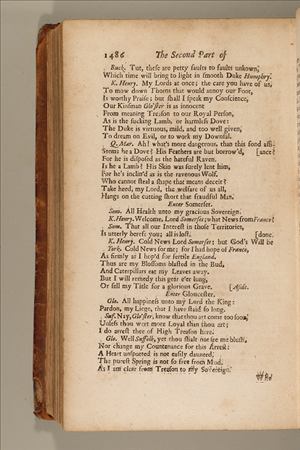 1486 The Second Part of
Buck. Tut, these are petty faults to faults unkown,
Which time will bring to light in smooth Duke Humphry.
K. Henry. My Lords at once; the care you have of us,
To mow down Thorns that would annoy our Foot,
Is worthy Praise; but shall I speak my Conscience,
Our Kinsman Glo'ster is as innocent
From meaning Treason to our Royal Person,
As is the sucking Lamb, or harmless Dove:
The Duke is virtuous, mild, and too well given,
To dream on Evil, or to work my Downfal.
Q. Mar. Ah! what's more dangerous, than this fond affi-
Seems he a Dove? His Feathers are but borrow'd, [ance?
For he is disposed as the hateful Raven.
Is he a Lamb? His Skin was surely lent him,
For he's inclin'd as is the ravenous Wolf.
Who cannot steal a shape that means deceit?
Take heed, my Lord, the welfare of us all,
Hangs on the cutting short that fraudful Man.
Enter Somerset.
Som. All Health unto my gracious Sovereign.
K. Henry. Welcome, Lord Somerset; what News from France?
Som. That all our Interest in those Territories,
Is utterly bereft you; all is lost. [done.
K. Henry. Cold News Lord Somerset; but God's Will be
York. Cold News for me; for I had hope of France,
As firmly as I hop'd for fertile England.
Thus are my Blossoms blasted in the Bud,
And Caterpillars eat my Leaves away.
But I will remedy this gear e'er long,
Or sell my Title for a glorious Grave. [Aside.
Enter Gloucester.
Glo. All happiness unto my Lord the King:
Pardon, my Liege, that I have staid so long.
Suf. Nay, Glo'ster, know that thou art come too soon,
Unless thou wert more Loyal than thou art;
I do arrest thee of High Treason here.
Glo. Well Suffolk, yet thou shalt not see me blush,
Nor change my Countenance for this Arrest:
A Heart unspotted is not easily daunted,
The purest Spring is not so free from Mud,
As I am clear from Treason to my Sovereign.